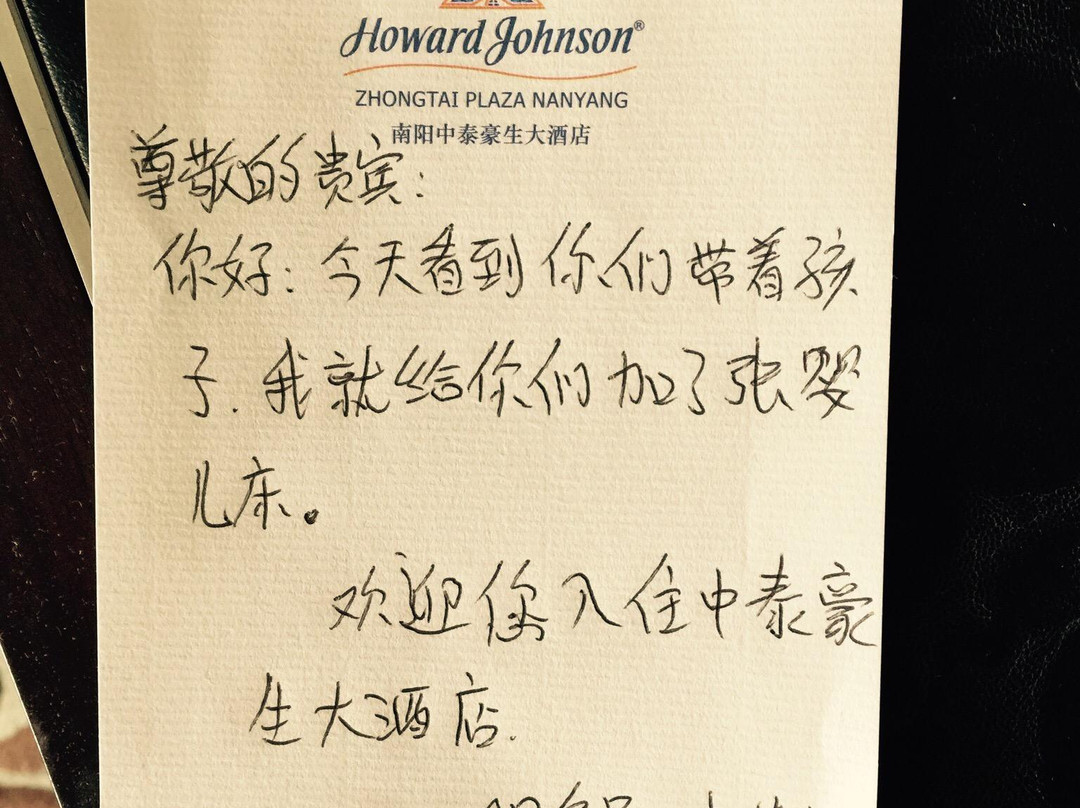 Howard Johnson®
ZHONGTAI PLAZA NANYANG
南阳中泰豪生大酒店
尊敬的贵宾:
你好:今天看到你们带着孩
子.我就给你们加了张婴
儿床。
欢迎您入住中泰豪
生大酒店.